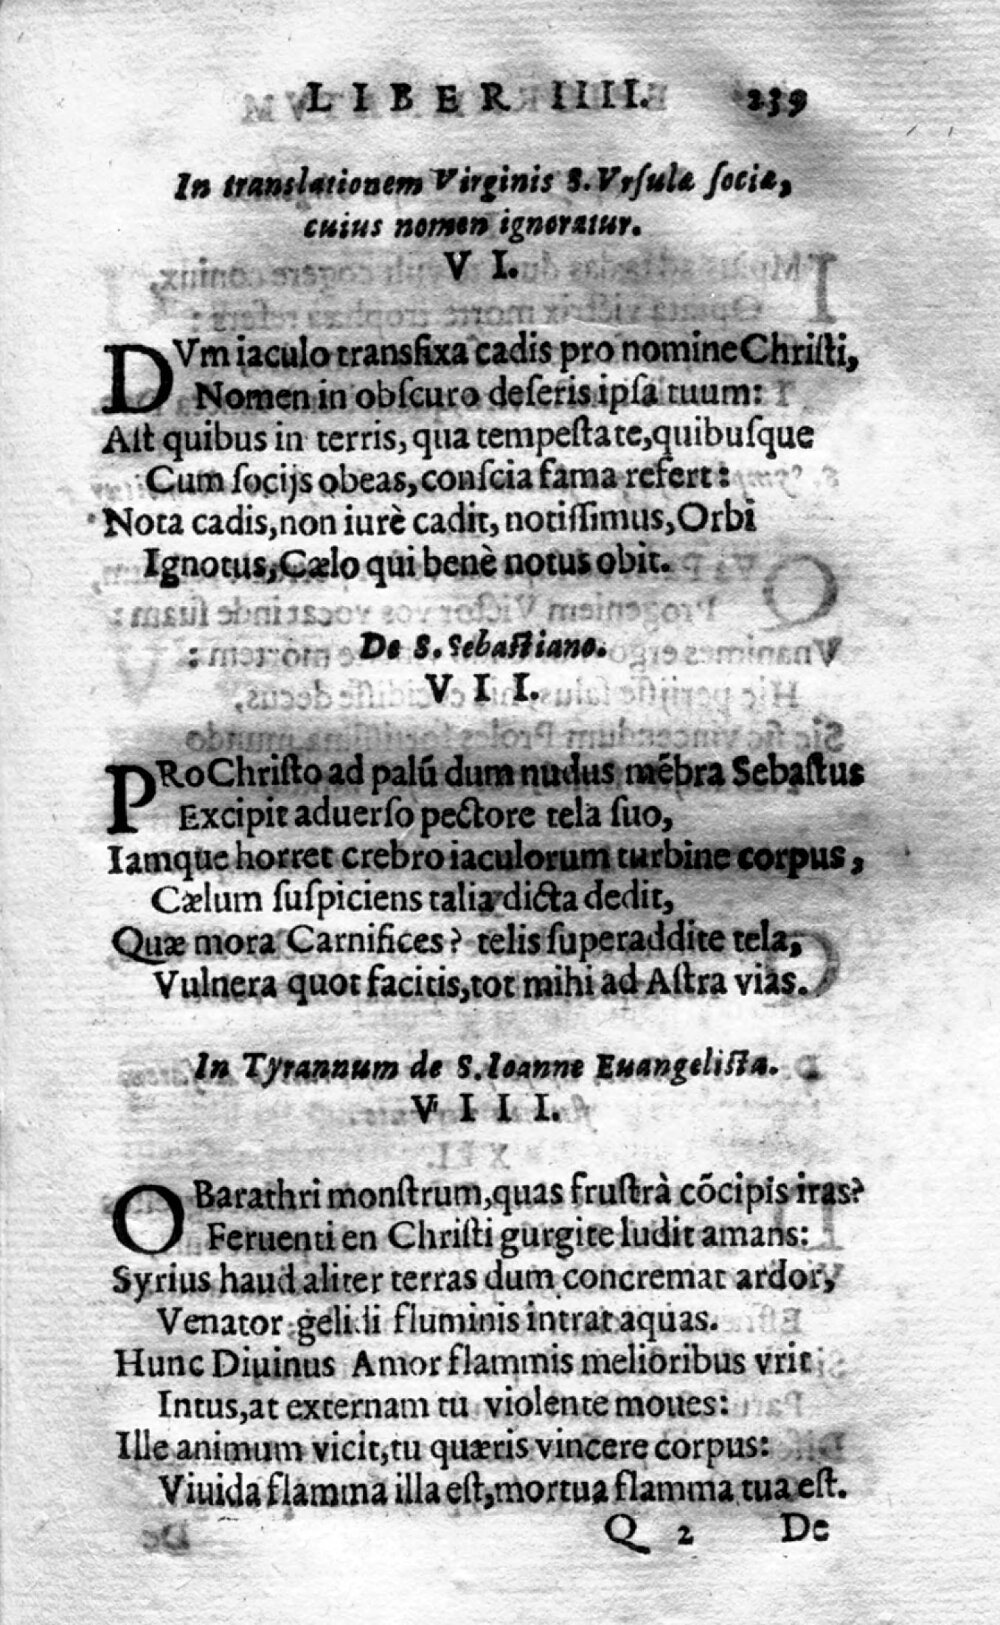 LIBER IIII. 239
In translationem Virginis S. Vrſulæ ſociæ,
cuius nomen ignoratur.
V I.
DVm iaculo transfixa cadis pro nomine Chriſti,
Nomen in obſcuro deſeris ipſa tuum:
Aſt quibus in terris, qua tempeſtate, quibuſque
Cum ſocijs obeas, conſcia fama refert:
Nota cadis, non iurè cadit, notiſſimus, Orbi
Ignotus, Cælo qui benè notus obit.
De S. Sebaſtiano.
V I I.
PRo Chriſto ad palū dum nudus mēbra Sebaſtus
Excipit aduerſo pectore tela ſuo,
Iamque horret crebro iaculorum turbine corpus,
Cælum ſuſpiciens talia dicta dedit,
Quæ mora Carnifices? telis ſuperaddite tela,
Vulnera quot facitis, tot mihi ad Aſtra vias.
In Tyrannum de S. Ioanne Euangeliſta.
V I I I.
O Barathri monſtrum, quas fruſtrà cōcipis iras?
Feruenti en Chriſti gurgite ludit amans:
Syrius haud aliter terras dum concremat ardor,
Venator gelidi fluminis intrat aquas.
Hunc Diuinus Amor flammis melioribus vrit
Intus, at externam tu violente moues:
Ille animum vicit, tu quæris vincere corpus:
Viuida flamma illa eſt, mortua flamma tua eſt.
Q 2 De